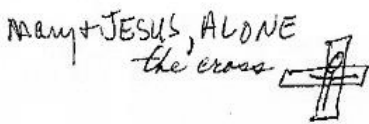 Mary + JESUS, ALONE
the cross